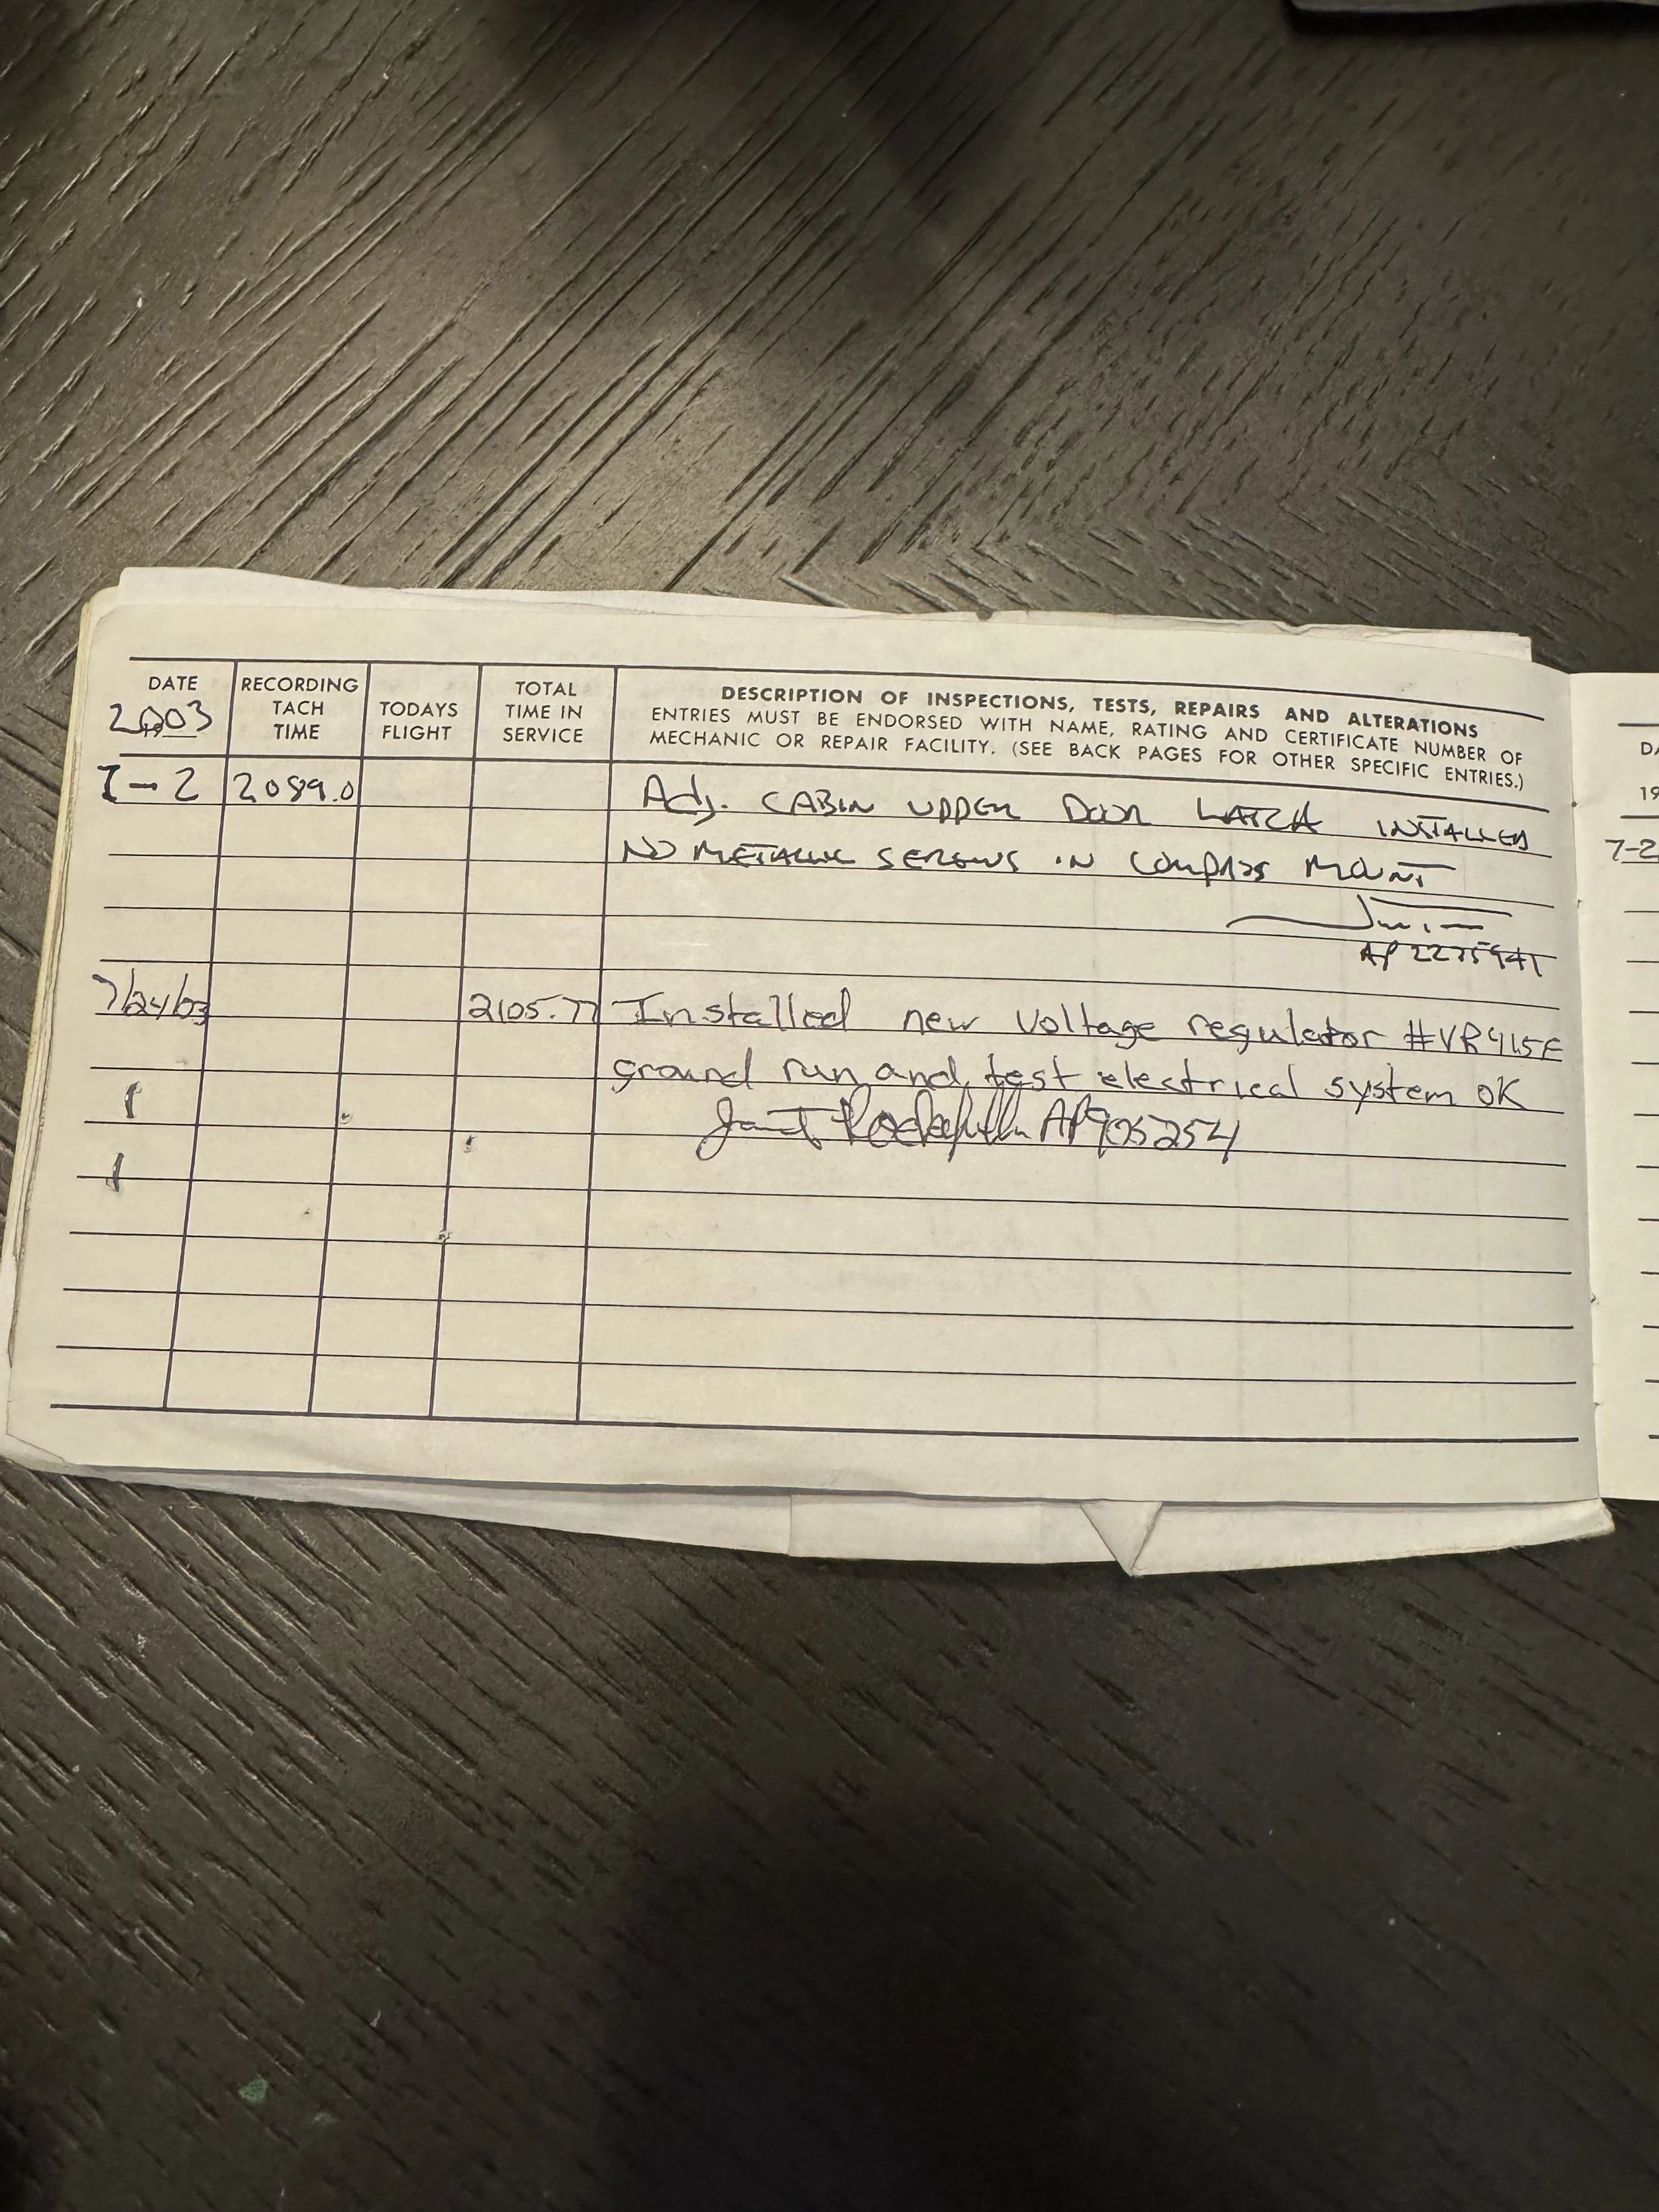 DATE
2003
RECORDING
TACH
TIME
TODAYS
FLIGHT
TOTAL
TIME IN
SERVICE
DESCRIPTION OF INSPECTIONS, TESTS, REPAIRS AND ALTERATIONS
ENTRIES MUST BE ENDORSED WITH NAME, RATING AND CERTIFICATE NUMBER OF
MECHANIC OR REPAIR FACILITY. (SEE BACK PAGES FOR OTHER SPECIFIC ENTRIES.)
7-2 2089.0 Adj. CABIN UPPER DOOR LATCH INSTALLED
NO METALLIC SCREWS IN COMPASS MOUNT
AP
7/24/03 2105.77 Installed new voltage regulator #VR415E
ground run and test electrical system OK
AP905254
19
7-2